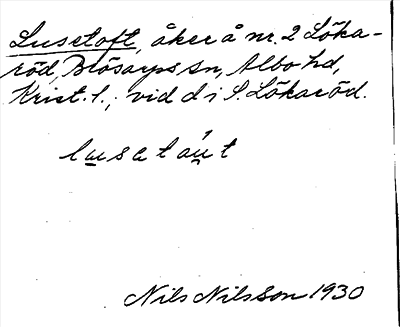 Lusetoft, åker å nr. 2 Löka-
röd, Brösarps sn, Albo hd,
Krist. l., vid d i S. Lökaröd.
lusatáut
Nils Nilsson 1930